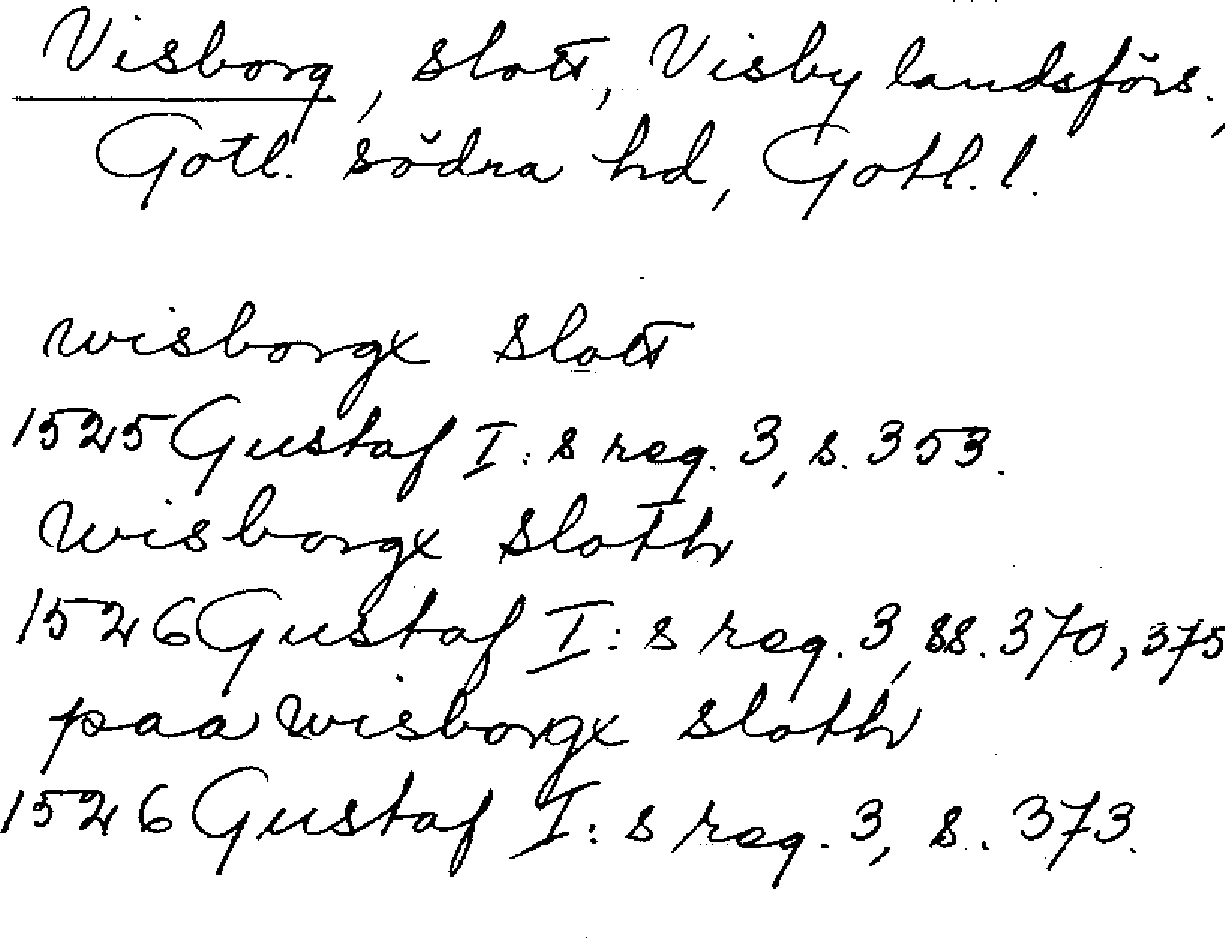 Visborg, slott, Visby landsförs.,
Gotl. södra hd, Gotl. l.
wisborgx slott
1525 Gustaf I:s reg. 3, s. 353.
wisborgx slothr
1526 Gustaf I:s reg. 3, ss. 370, 375
paa wisborgx slothr
1526 Gustaf I:s reg. 3, s. 373.